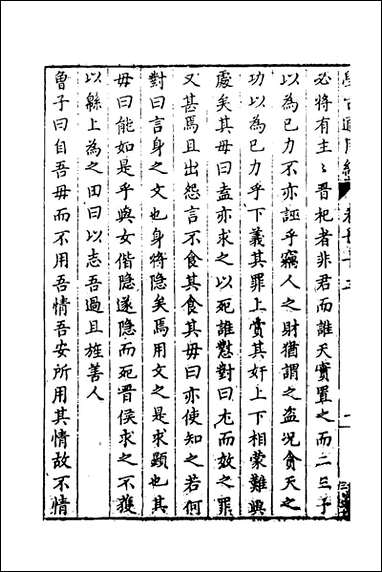 必將有主〻晋祀者非君而誰天實置之而二三子
以為已力不亦誣乎竊人之財猶謂之盗况貪天之
功以為已力乎下義其罪上賞其奸上下相蒙難與
處矣其毋曰盍亦求之以死誰懟對曰尤而效之罪
又甚焉且出怨言不食其食其毋曰亦使知之若何
對曰言身之文也身將隱矣焉用文之是求顯也其
毋曰能如是乎與女偕隱遂隱而死晋侯求之不獲
以緜上為之田曰以志吾過且旌善人
曽子曰自吾毋而不用吾情吾安所用其情故不情